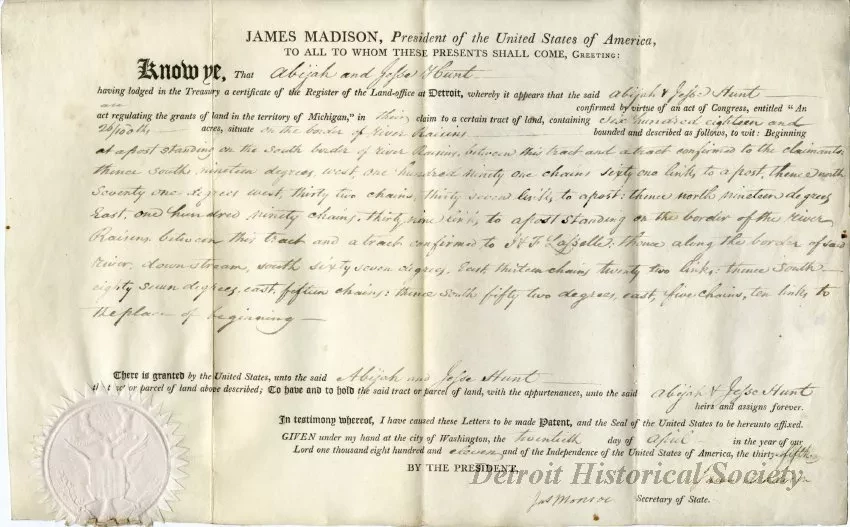 JAMES MADISON, President of the United States of America,
TO ALL TO WHOM THESE PRESENTS SHALL COME, GREETING:
Know ye, That Abijah and Jesse Hunt
having lodged in the Treasury a certificate of the Register of the Land-office at Detroit, whereby it appears that the said Abijah & Jesse Hunt
are confirmed by virtue of an act of Congress, entitled "An
act regulating the grants of land in the territory of Michigan," in their claim to a certain tract of land, containing Six hundred eighteen and
26/100ths acres, situate on the border of River Raisins bounded and described as follows, to wit: Beginning
at a post standing on the South border of river Raisins, between this tract and a tract confirmed to the claimants,
thence South, nineteen degrees, west, one hundred ninety one chains sixty one links to a post, thence north
Seventy one degrees west, thirty two chains, thirty seven links, to a post: thence north nineteen degrees
East, one hundred ninety chains, thirty nine links, to a post standing on the border of the river
Raisins, between this tract and a tract confirmed to J & F Lasselle: thence along the border of said
river, down stream, south sixty seven degrees, East thirteen chains twenty two links: thence South
eighty seven degrees, east, fifteen chains: thence South fifty two degrees, east, five chains, ten links, to
the place of beginning
There is granted by the United States, unto the said Abijah and Jesse Hunt
the tract or parcel of land above described; To have and to hold the said tract or parcel of land, with the appurtenances, unto the said Abijah & Jesse Hunt
heirs and assigns forever.
In testimony whereof, I have caused these Letters to be made Patent, and the Seal of the United States to be hereunto affixed.
GIVEN under my hand at the city of Washington, the twentieth day of April in the year of our
Lord one thousand eight hundred and eleven and of the Independence of the United States of America, the thirty-fifth
James Madison
BY THE PRESIDENT.
Detroit Historical Society
Jas Monroe Secretary of State.